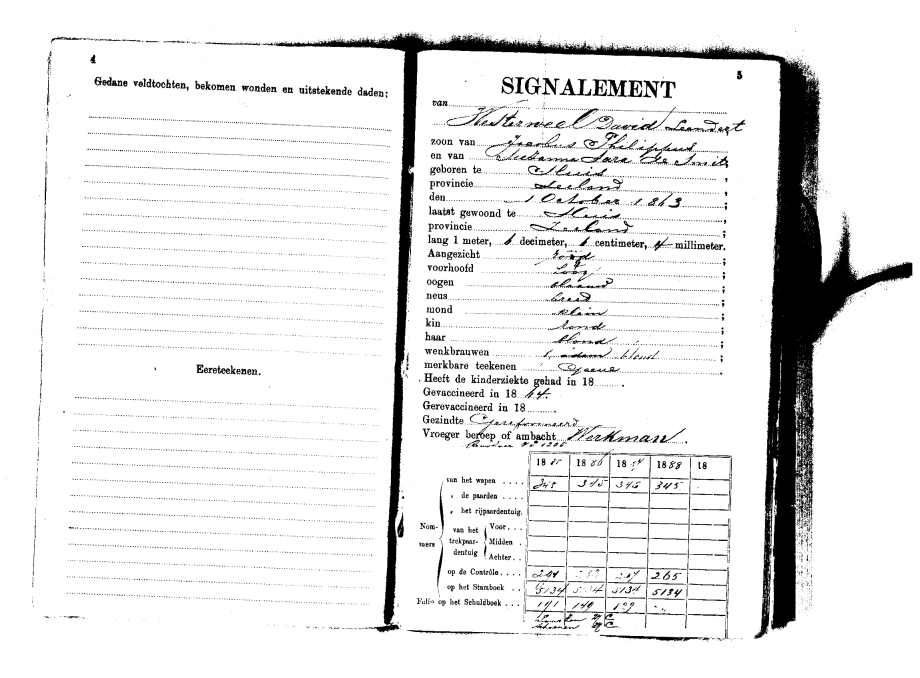 4
Gedane veldtochten, bekomen wonden en uitstekende daden:
Eereteekenen.
5
SIGNALEMENT
van
Westerweel David Leendert
zoon van Jacobus Philippus
en van Susanna Sara De Smit;
geboren te Sluis ;
provincie Zeeland ;
den 1 October 1863 ;
laatst gewoond te Sluis ;
provincie Zeeland ;
lang 1 meter, 6 decimeter, 6 centimeter, 4 millimeter.
Aangezicht rond ;
voorhoofd hoog ;
oogen blaauw ;
neus breed ;
mond klein ;
kin rond ;
haar blond ;
wenkbrauwen idem blond ;
merkbare teekenen Geene .
Heeft de kinderziekte gehad in 18 .
Gevaccineerd in 18 64.
Gerevaccineerd in 18 .
Gezindte Gereformeerd
Vroeger beroep of ambacht Werkman.
18 85 18 86 18 18 88 18
Nommers
van het wapen . . . . 345 345 345 345
„ de paarden . . . .
„ het rijpaardentuig.
van het trekpaardentuig
Voor . . .
Midden .
Achter . .
op de Contrôle . . . . 265
op het Stamboek . . . 5134 5134 5134 5134
Folio op het Schuldboek . . . 191 149